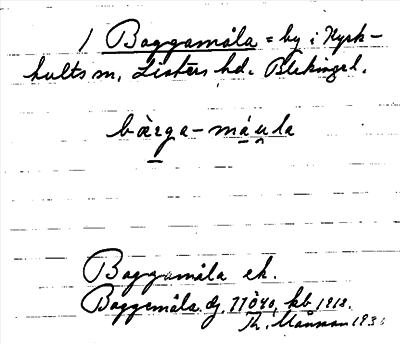 1 Baggamåla = by i Kyrk-
hults sn, Listers hd. Blekinge l.
bàrga-máula
Baggamåla ek.
Baggemåla dj 11040, kb 1918.
Th. Månsson 193